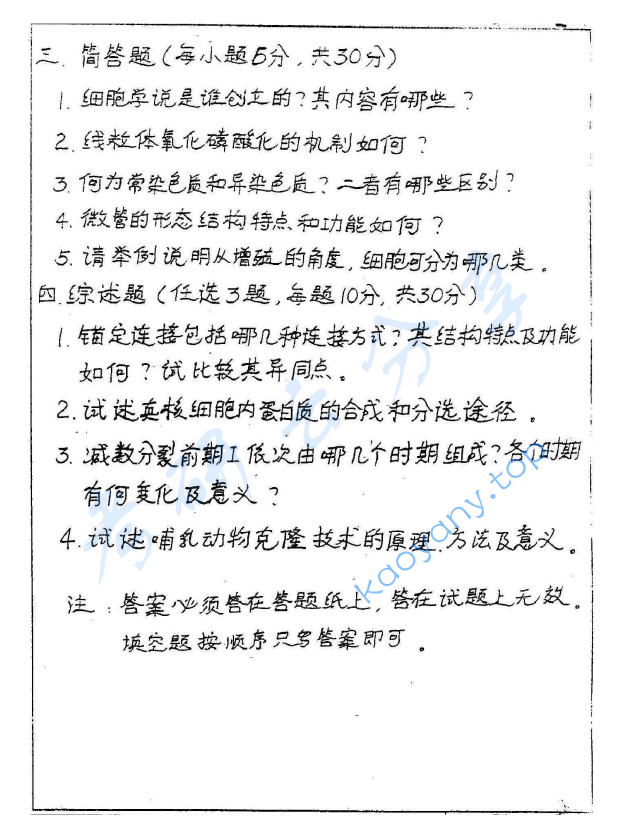 三. 简答题(每小题5分,共30分)
1. 细胞学说是谁创立的?其内容有哪些?
2. 线粒体氧化磷酸化的机制如何?
3. 何为常染色质和异染色质?二者有哪些区别?
4. 微管的形态结构特点和功能如何?
5. 请举例说明从增殖的角度,细胞可分为哪几类。
四. 综述题(任选3题,每题10分,共30分)
1. 锚定连接包括哪几种连接方式?其结构特点及功能
如何?试比较其异同点。
2. 试述真核细胞内蛋白质的合成和分选途径。
3. 减数分裂前期I依次由哪几个时期组成?各个时期
有何变化及意义?
4. 试述哺乳动物克隆技术的原理、方法及意义。
注:答案必须答在答题纸上,答在试题上无效。
填空题按顺序只写答案即可。
考研云分享
kaoyany.top